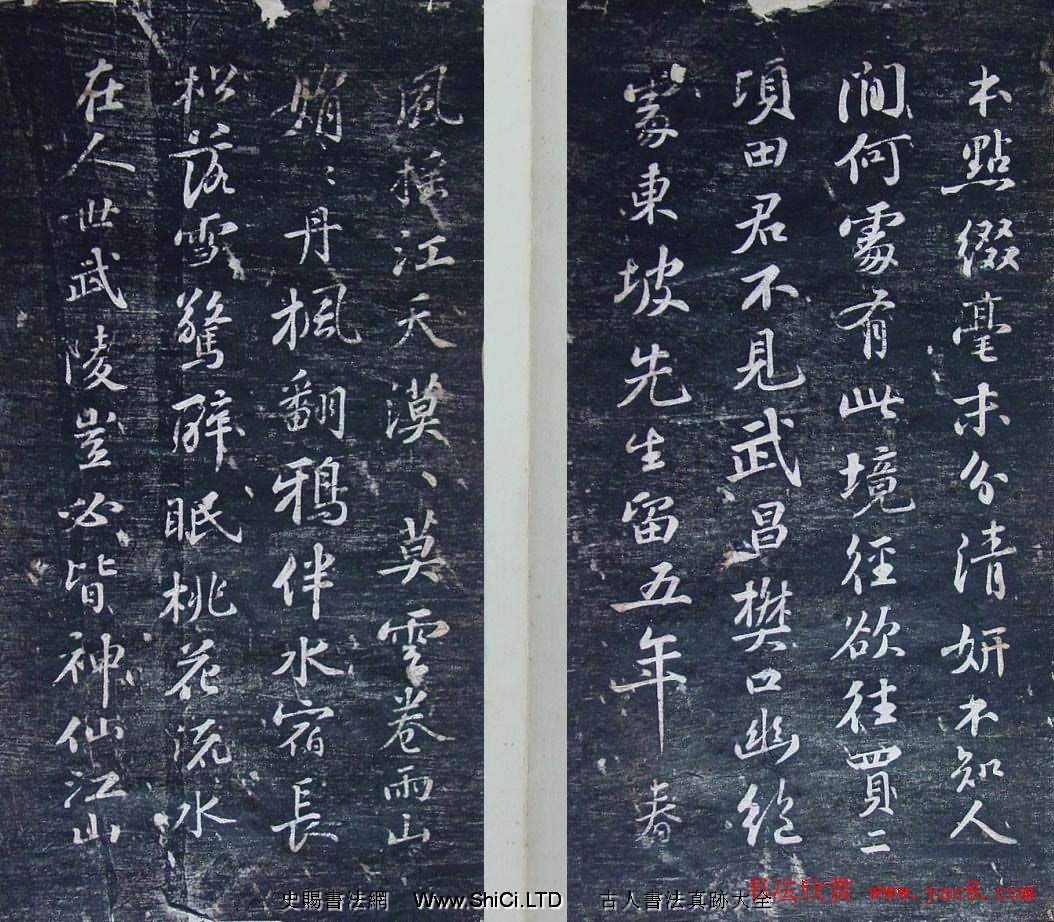 本點綴毫末分清妍不知人
間何處有此境徑欲往買二
頃田君不見武昌樊口幽絕
處東坡先生留五年春
風搖江天漠〻莫雲卷雨山
娟〻丹楓翻鴉伴水宿長
松落雪驚醉眠桃花流水
在人世武陵豈必皆神仙江山
史賜書法網 Www.ShiCi.LTD 古人書法真跡大全
书法欣赏 www.yac8.com